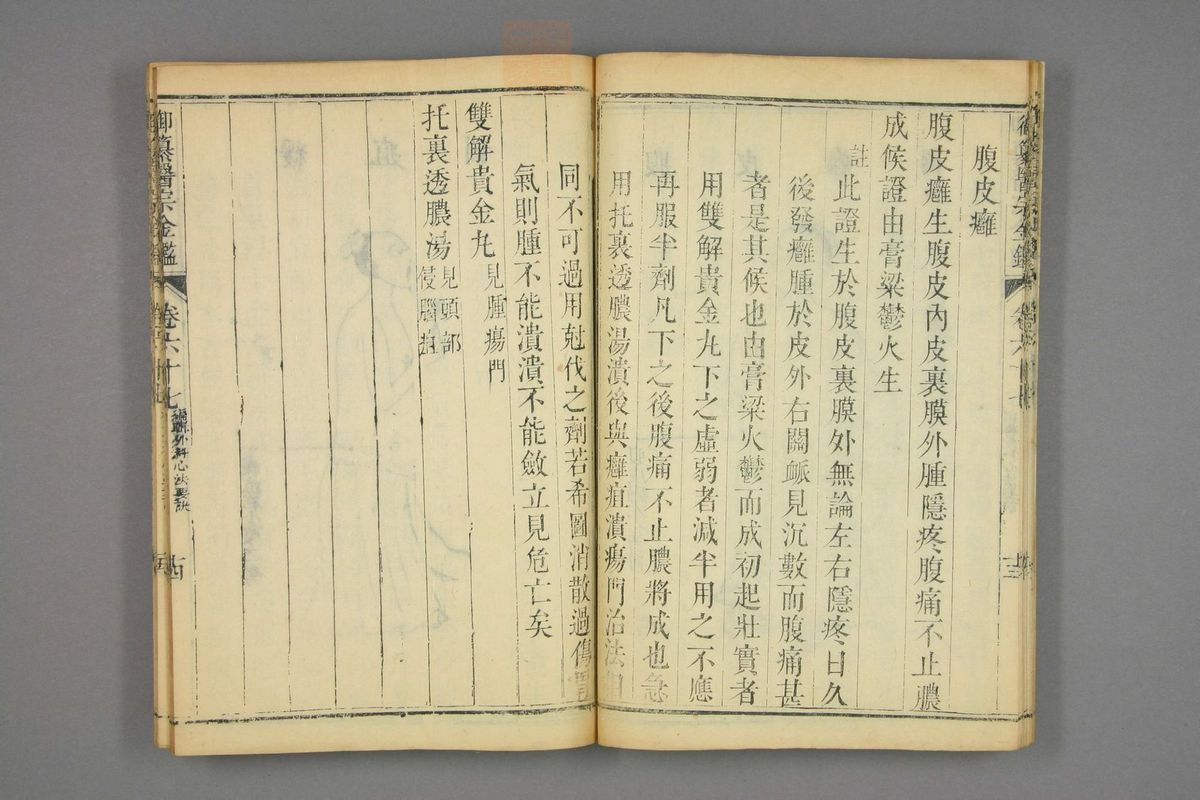 腹皮癰
腹皮癰生腹皮內皮裏膜外腫隱疼腹痛不止膿
成候證由膏粱鬱火生
註此證生於腹皮裏膜外無論左右隱疼日久
後發癰腫於皮外右關脈見沉數而腹痛甚
者是其候也由膏粱火鬱而成初起壯實者
用雙解貴金丸下之虛弱者減半用之不應
再服半劑凡下之後腹痛不止膿將成也急
用托裏透膿湯潰後與癰疽潰瘍門治法相
同不可過用尅伐之劑若希圖消散過傷胃
氣則腫不能潰潰不能斂立見危亡矣
雙解貴金丸見腫瘍門
托裏透膿湯見頭部
侵腦疽
御纂醫宗金鑑
卷六十七
編輯外科心法要訣
十四